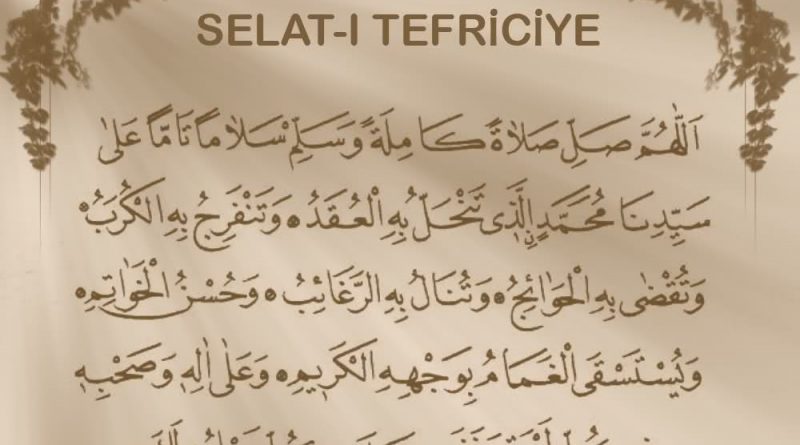 SELAT-I TEFRİCİYE
اَللّٰهُمَّ صَلِّ صَلَاةً كَامِلَةً وَسَلِّمْ سَلَامًا تَامًّا عَلٰى
سَيِّدِنَا مُحَمَّدٍ ۨالَّذِى تَنْحَلُّ بِهِ الْعُقَدُ ۞ وَتَنْفَرِجُ بِهِ الْكُرَبُ ۞
وَتُقْضٰى بِهِ الْحَوَائِجُ ۞ وَتُنَالُ بِهِ الرَّغَائِبُ ۞ وَحُسْنُ الْخَوَاتِمِ ۞
وَيُسْتَسْقَى الْغَمَامُ بِوَجْهِهِ الْكَرِيمِ ۞ وَعَلٰى اٰلِهِ وَصَحْبِهِ